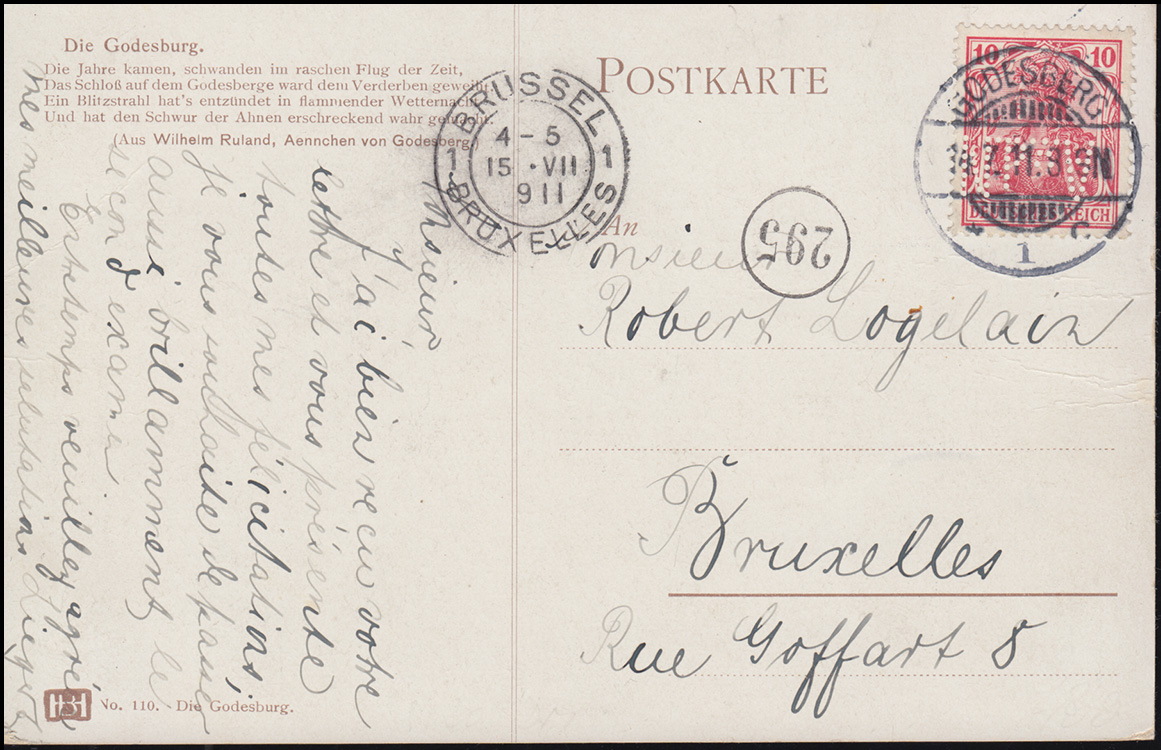 Die Godesburg.
Die Jahre kamen, schwanden im raschen Flug der Zeit,
Das Schloß auf dem Godesberge ward dem Verderben geweiht,
Ein Blitzstrahl hat's entzündet in flammender Wetternacht
Und hat den Schwur der Ahnen erschreckend wahr gemacht.
(Aus Wilhelm Ruland, Aennchen von Godesberg.)
Monsieur,
J'ai bien reçu votre
lettre et vous présente
toutes mes félicitations,
je vous souhaite de passer
aussi brillamment le
second examen
Entretemps veuillez agréer
mes meilleures salutations
No. 110. Die Godesburg.
HBH
BRÜSSEL
4-5
15 · VII
911
1 1
BRUXELLES
POSTKARTE
10 10
DEUTSCHES REICH
GODESBERG
11.3
1
295
An
Monsieur
Robert Logelain
Bruxelles
Rue Goffart 8